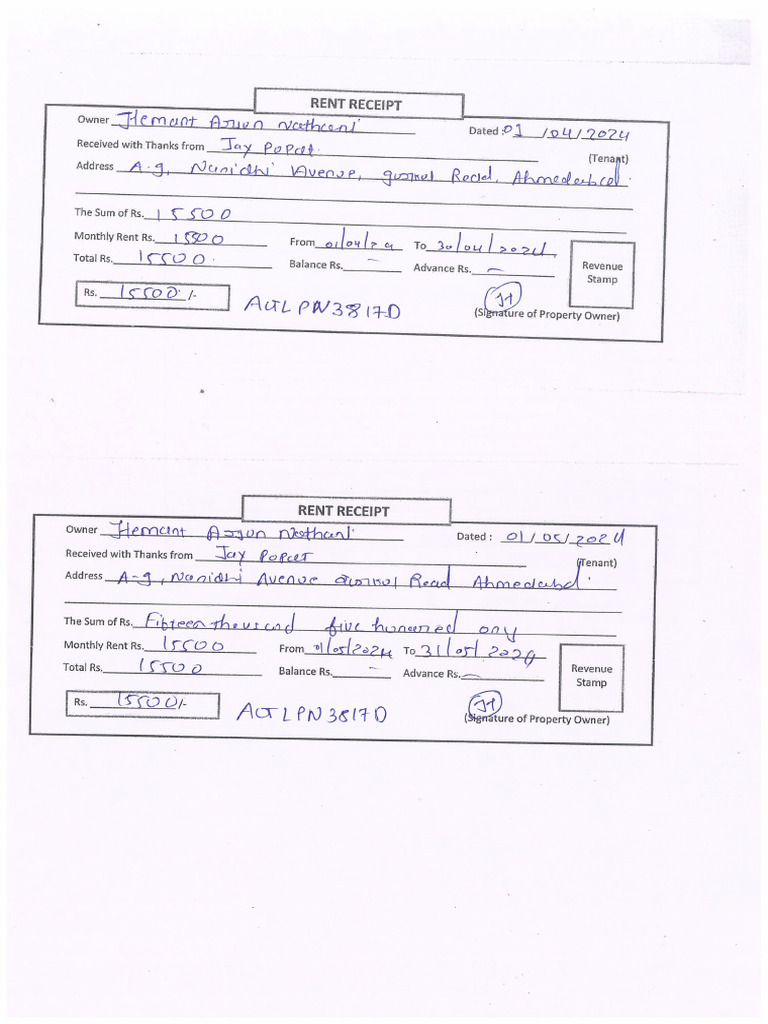 RENT RECEIPT
Owner Hemant Arjun Nathani
Dated : 01/04/2024
Received with Thanks from Jay Popat. (Tenant)
Address A-9, Nanidhi Avenue, gurukul Road, Ahmedabad.
The Sum of Rs. 15500
Monthly Rent Rs. 1500 From 01/04/24 To 30/04/2024
Total Rs. 15500. Balance Rs. — Advance Rs. —
Revenue Stamp
Rs. 15500. /-
(Signature of Property Owner)
RENT RECEIPT
Owner Hemant Arjun Nathani
Dated : 01/05/2024
Received with Thanks from Jay Popat (Tenant)
Address A-9, Nanidhi Avenue Gurukul Road Ahmedabad.
The Sum of Rs. Fifteen thousand five hundred only
Monthly Rent Rs. 15500 From 01/05/2024 To 31/05/2024
Total Rs. 15500 Balance Rs. — Advance Rs. —
Revenue Stamp
Rs. 15500/-
(Signature of Property Owner)